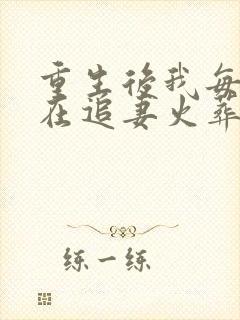 重生後我每
在追妻火葬
练一练